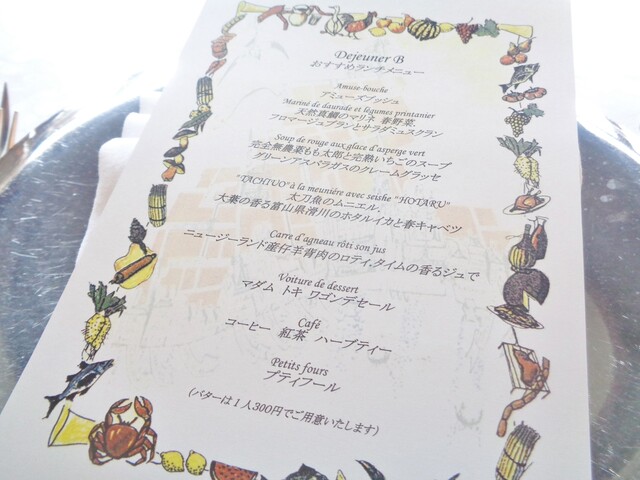 Dejeuner B
おすすめランチメニュー
Amuse-bouche
アミューズブッシュ
Mariné de daurade et légumes printanier
天然真鯛のマリネ 春野菜、
フロマージュブランとサラダミュスクラン
Soup de rouge aux glace d'asperge vert
完全無農薬もも太郎と完熟いちごのスープ
グリーンアスパラガスのクレームグラッセ
"TACHIUO" à la meunière avec seishe "HOTARU"
太刀魚のムニエル
大葉の香る富山県滑川のホタルイカと春キャベツ
Carre d'agneau rôti son jus
ニュージーランド産仔羊背肉のロティ、タイムの香るジュで
Voiture de dessert
マダム トキ ワゴンデセール
Café
コーヒー 紅茶 ハーブティー
Petits fours
プティフール
(バターは1人300円でご用意いたします)